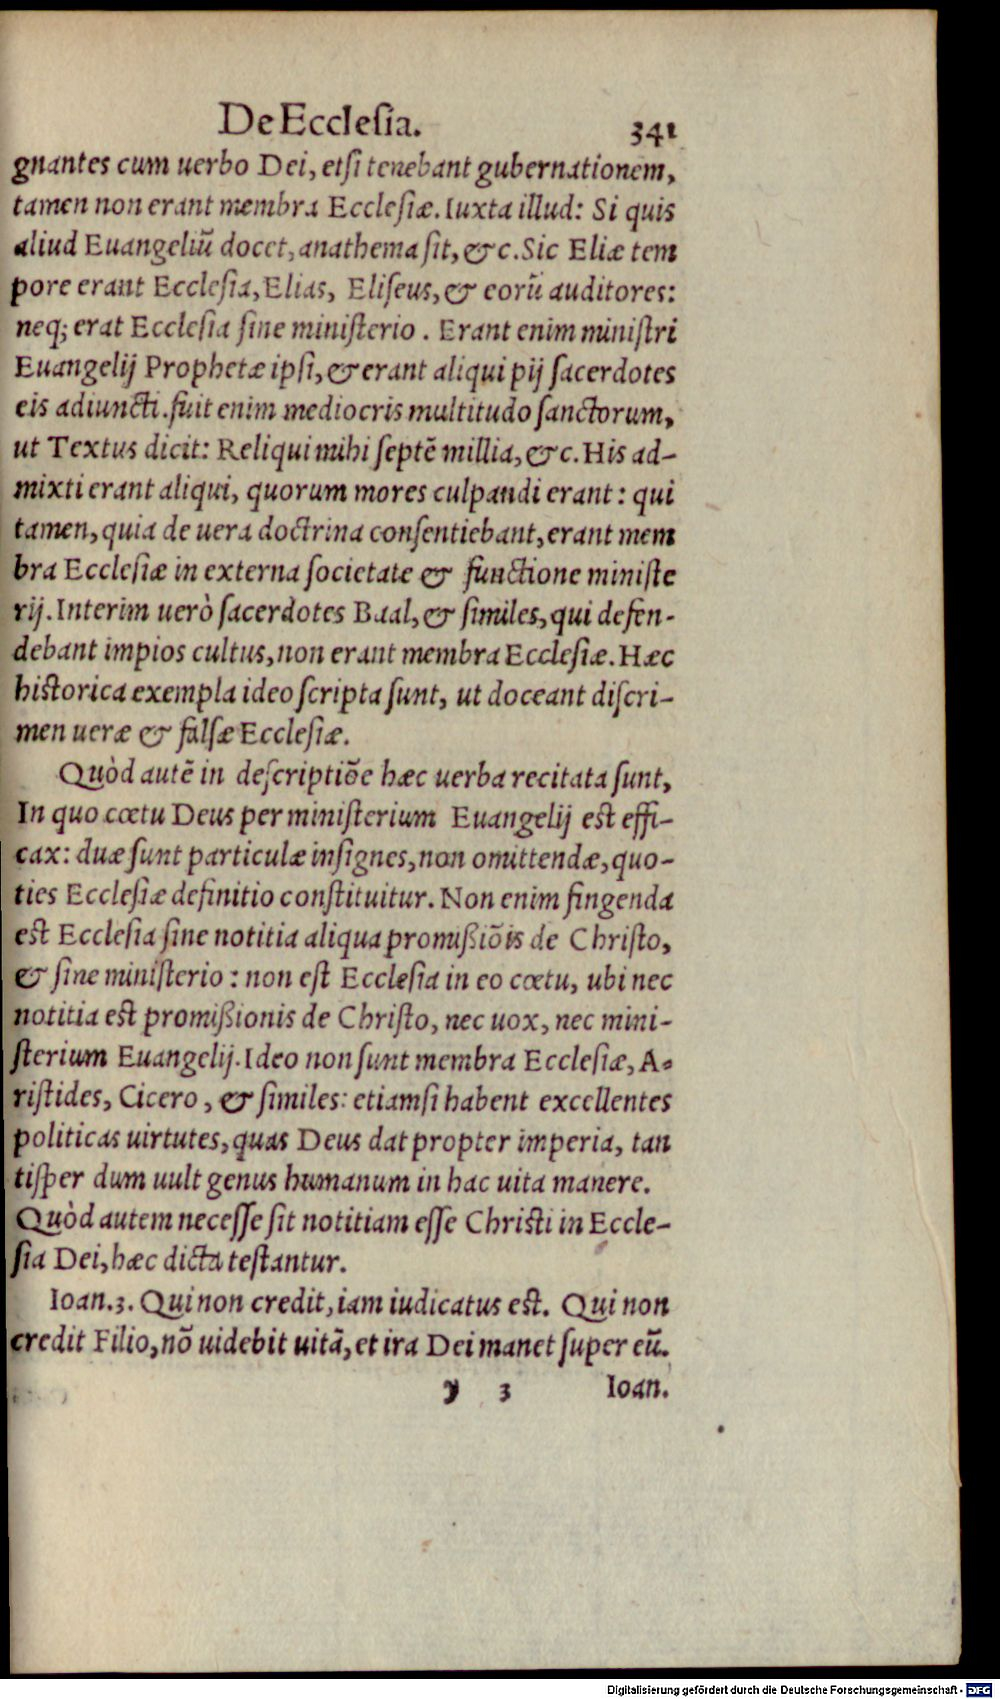 De Ecclesia. 341
gnantes cum uerbo Dei, etsi tenebant gubernationem,
tamen non erant membra Ecclesiæ. Iuxta illud: Si quis
aliud Euangeliū docet, anathema sit, &c. Sic Eliæ tem
pore erant Ecclesia, Elias, Eliseus, & eorū auditores:
neq; erat Ecclesia sine ministerio. Erant enim ministri
Euangelij Prophetæ ipsi, & erant aliqui pij sacerdotes
eis adiuncti. fuit enim mediocris multitudo sanctorum,
ut Textus dicit: Reliqui mihi septē millia, &c. His ad-
mixti erant aliqui, quorum mores culpandi erant: qui
tamen, quia de uera doctrina consentiebant, erant mem
bra Ecclesiæ in externa societate & functione ministe
rij. Interim uerò sacerdotes Baal, & similes, qui defen-
debant impios cultus, non erant membra Ecclesiæ. Hæc
historica exempla ideo scripta sunt, ut doceant discri-
men ueræ & falsæ Ecclesiæ.
Quòd autē in descriptiōe hæc uerba recitata sunt,
In quo cœtu Deus per ministerium Euangelij est effi-
cax: duæ sunt particulæ insignes, non omittendæ, quo-
ties Ecclesiæ definitio constituitur. Non enim fingenda
est Ecclesia sine notitia aliqua promißiōis de Christo,
& sine ministerio: non est Ecclesia in eo cœtu, ubi nec
notitia est promißionis de Christo, nec uox, nec mini-
sterium Euangelij. Ideo non sunt membra Ecclesiæ, A-
ristides, Cicero, & similes: etiamsi habent excellentes
politicas uirtutes, quas Deus dat propter imperia, tan
tisper dum uult genus humanum in hac uita manere.
Quòd autem necesse sit notitiam esse Christi in Eccle-
sia Dei, hæc dicta testantur.
Ioan.3. Qui non credit, iam iudicatus est. Qui non
credit Filio, nō uidebit uitā, et ira Dei manet super eū.
y 3 Ioan.
Digitalisierung gefördert durch die Deutsche Forschungsgemeinschaft - DFG